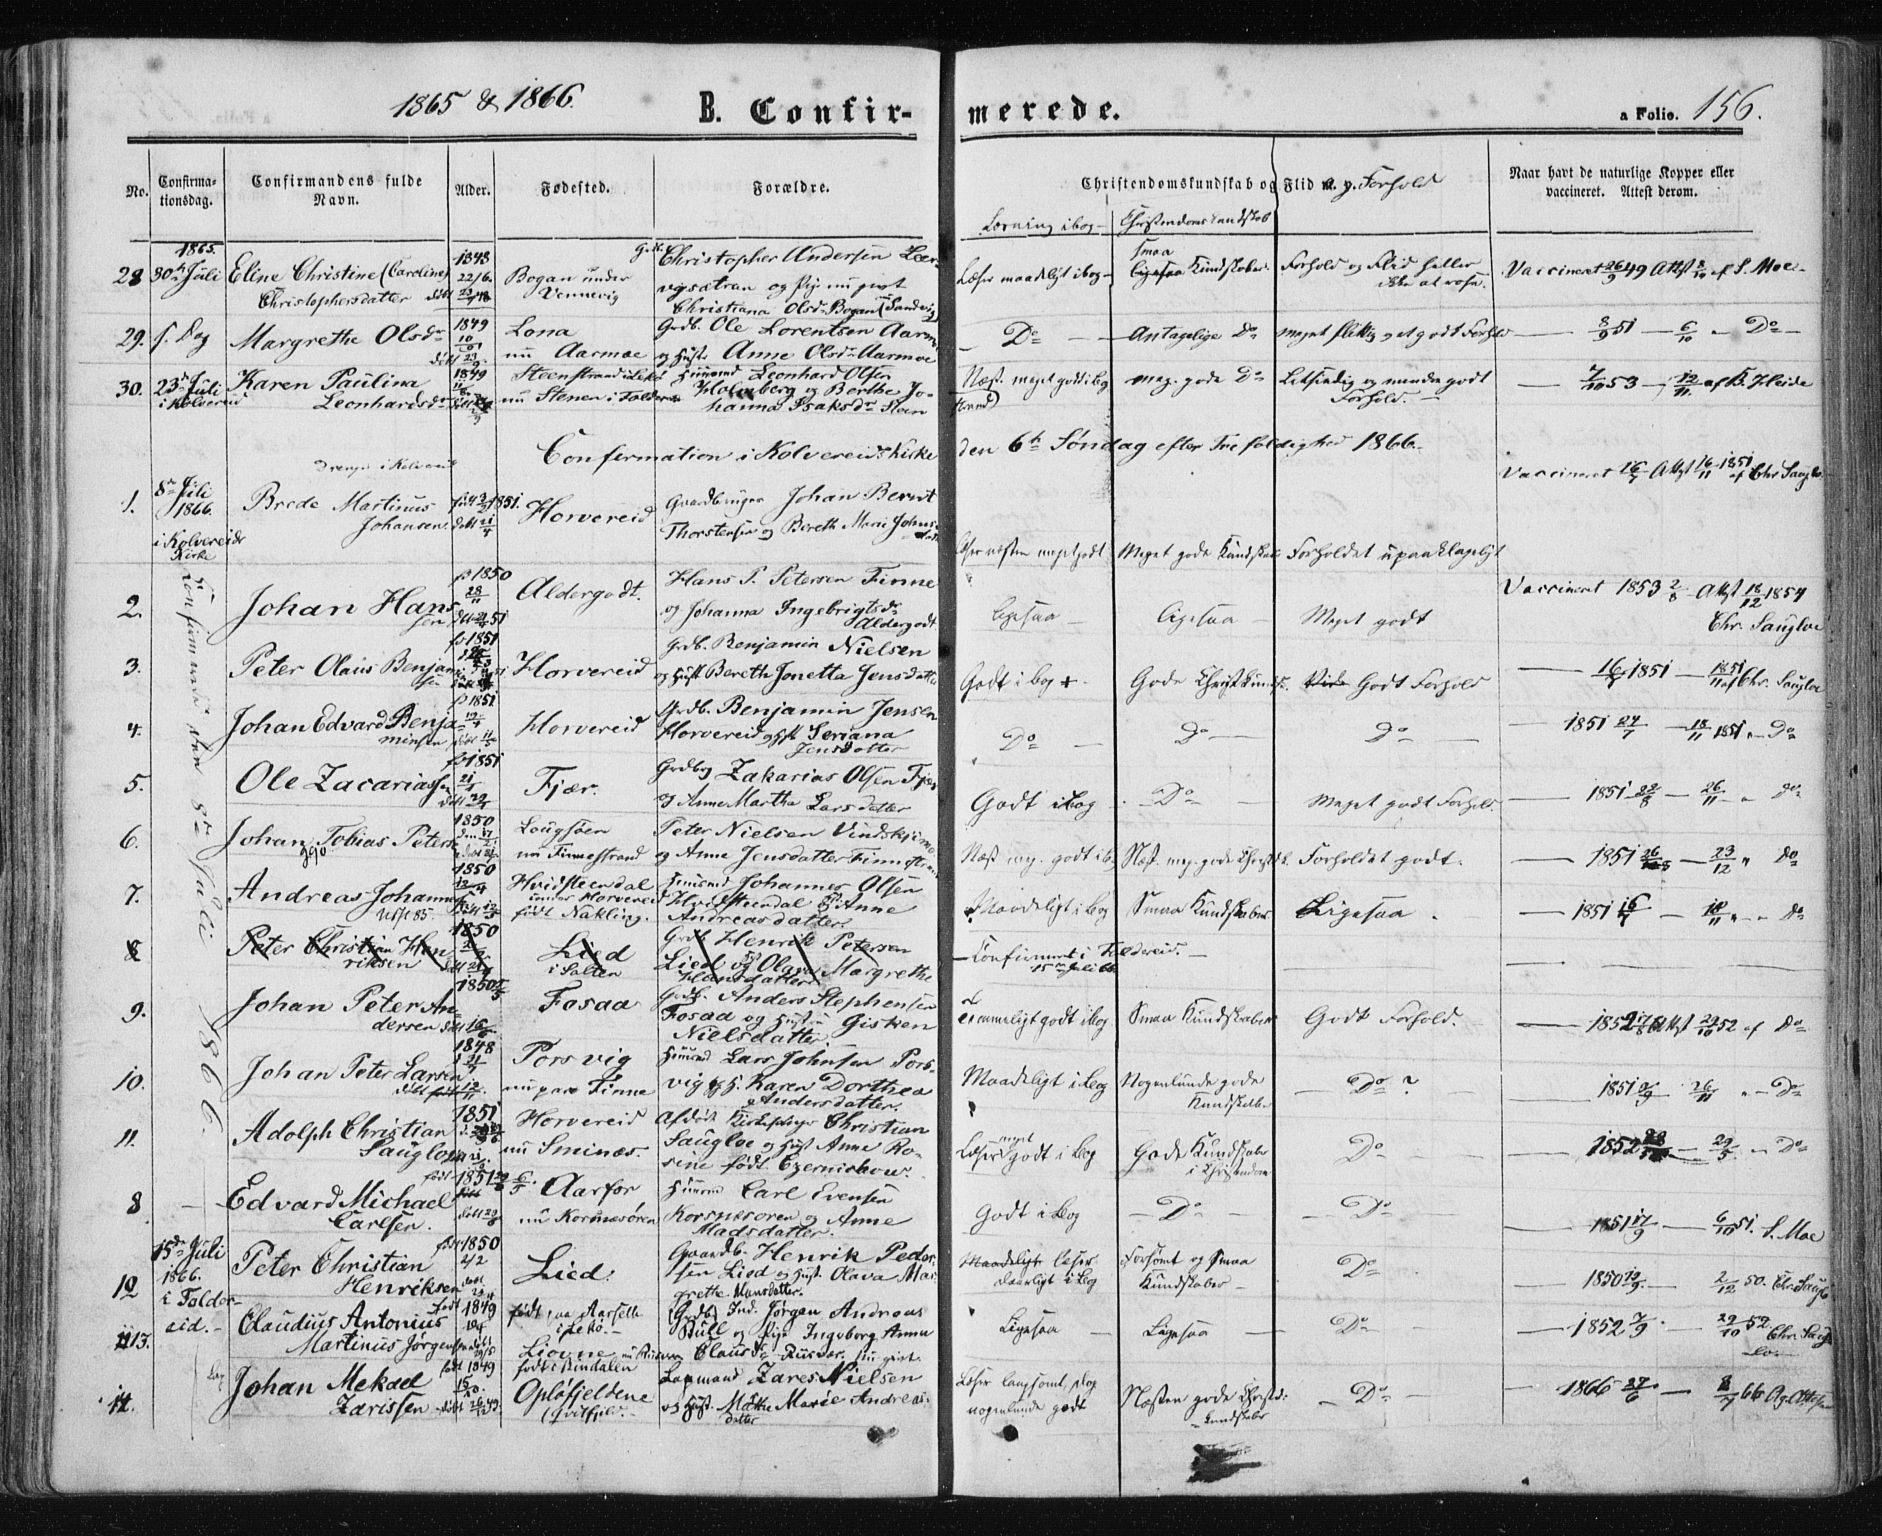 1865 & 1866.
B. Confir-
merede.
a Folio. 156.
No.
Confirma-
tionsdag.
Confirmandens fulde
Navn.
Alder.
Fødested.
Forældre.
Christendomskundskab og Flid m. v. Forhold
Naar havt de naturlige Kopper eller
vaccineret. Attest derom.
Læsning i bog
Christendoms kundskab
28 1865. 30te Juli Eline Christine (Caroline)
Christophersdatter
1848
Bogan under
Vennevig
Christopher Andersen Leer-
vigsætran og Pige nu givt
Christiana Olsdr Bogan (Sandvig
Læser maadeligt i bog
Smaa
Kundskaber
Forhold og Flid heller
ikke at rose.
Vaccineret 26/9 49 Attst 8/10 af S. Moe
29. s. Dag Margrethe Olsdr
1849
Lona
nu Aarmoe
Grdb. Ole Lorentsen Aarmo
og Hustr Anne Olsdr Aarmoe
Do
Antagelige Do
meget flittig og et godt Forhold
8/9 51 6/10 Do
30. 23de Juli
i Kolvereid
Karen Paulina
Leonhardsdr
1849
Steenstrand i Lekø
nu Stenen i Folderei
Huusmd Leonhard Olsen
Holmberg og Berthe Jo-
hanna Isaksdr Steen
Næst. meget godt i bog
meg. gode Do
Letsindig og mindre godt
Forhold.
7/10 53 12/11 af B. Heide
Confirmation i Kolvereids Kirke
den 6te Søndag efter Trefoldighed 1866.
Drenge i Kolvereid
1. 8de Juli
1866.
i Kolvereids
Kirke
Brede Martinus
Johansen
1851
Horvereid
Gaardbruger Johan Bernt
Thorstensen og Bereth Marie Johns-
datter
Læser næsten meget godt
Meget gode Kundskab
Forholdet upaaklageligt
Vaccineret 16/7 Attst 16/11 1851 af Chr Saugloe
Confirmeret den 8de Juli 1866.
2. Johan Hans
sen
1850
28/11
Aldergodt.
Hans P. Petersen Finne
og Johanna Ingebrigtsdr
Aldergodt
Ligesaa
Ligesaa
Meget godt
Vaccineret 1853 2/8 Attst 18/12 1854
Chr. Saugloe
3. Peter Olaus Benjam
sen
1851
Horvereid
Grdb. Benjamin Nielsen
og Hust Bereth Jonetta Jensdatter
Godt i bog
Gode Christ.Kundsk.
Godt Forhold
16/7 1851 1851 Chr. Saugloe
4. Johan Edvard Benja-
minsen
1851
Horvereid
Grdb. Benjamin Jensen
Horvereid og Hst Seriana
Jensdatter
Do
Do
Do
1851 24/7 18/11 1851 Do
5. Ole Zacariassen
1851
Fjær.
Grdbrg Zakarias Olsen Fjær
og Anne Martha Larsdatter
Godt i bog
Do
Meget godt Forhold.
1851 22/8 26/11 Do
6. Johan Tobias Peters
1850
Laugsøen
nu Finnestrand
Peter Nielsen Vindskjime
og Anne Jensdatter Finnestrand
Næst meg. godt i b.
Næst. meg. gode Christ.k.
Forholdet godt.
1851 26 23/12 Do
7. Andreas Johannes
1850
Hvidsteendal
under Horvereid
født Nakling.
Huusmd Johannes Olsen
Hvidsteendal og Anne
Andreasdatter
Maadeligt i bog
Smaa Kundskaber
Ligesaa
1851 16/7 18/11 Do
8 Peter Christian Hen
riksen
1850
Lied
i Salten
Grdb Henrik Petersen
Lied og Olava Margrethe
Hansdatter
Confirmeret i Foldereid.
15de Juli 66
9. Johan Peter An-
dersen
1850
Fosaa
Grdb. Anders Stephensen
Fosaa og Hustru Gisken
Nielsdatter
temmeligt godt i bog
Smaa Kundskaber
Godt Forhold.
1852 17/8 Attst 29/10 52 af Do
10. Johan Peter Larsen
1848
Porsvig
nu paa Finne
Huusmd Lars Johnsen Pors-
vig og H. Karen Dorthea
Andersdatter.
Maadeligt i bog
Nogenlunde gode
Kundskaber
Do ?
1851 26/11 Do
11. Adolph Christian
Saugloe
1851
Horvereid
nu Sminæs.
Afdøde Kirkesanger Christian
Saugloe og Hust Anne Ro-
sine født Czernichow.
Læser meget godt i bog
Gode Kundskaber
i Christendom
Do
1852 29/5 Do
8 Edvard Michael
Carlsen.
født 1851
Aarfor
nu Korsnæsøren
Huusmd Carl Evensen
Korsnæsøren og Anne
Madsdatter.
Godt i bog
Do
Do
1851 17/9 6/10 51. S. Moe
12 15de Juli
1866.
i Folder-
eid.
Peter Christian
Henriksen
født 1850
2/2
Lied.
Gaardb. Henrik Peder-
sen Lied og Hust. Olava Mar-
grethe Hansdatter.
Maadeligt læser
daarligt i bog
Forsømt og Smaa
Kundskaber
Do
1850 2/12 50. Chr. Saugl
13. Claudius Antonius
Martinus Jørgensen
født 1849
født paa Aarsette
i Lekø.
Liovne
(Grdb) Ind. Jørgen Andreas
Bull og Pige Ingeborg Anna
Clausdr Risvær. nu givt.
Ligesaa
Ligesaa
Do
1852 7/9 29/10 52 Chr. Saug
loe
14. Johan Mekael
Zarissen
født 1849
født i Bindalen
Opløfjeldene
(Qvitfjeld.
Lapmand Zares Nielsen
og Hust. Marie Andreas-
datter
Læser langsomt, dog
nogenlunde godt
Næsten gode Christd:
kundskaber
Do
1866 27/6 66